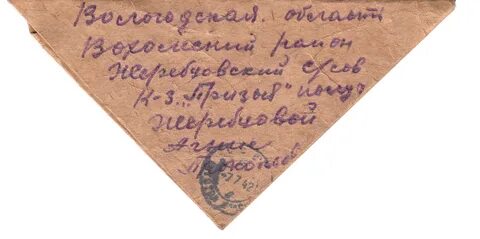 Вологодская область
Вохомский район
Жеребцовский с/сов
К-з. "Призыв" получ
Жеребцовой